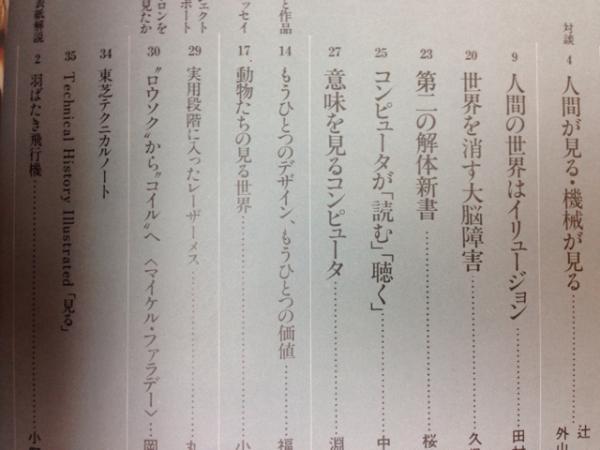 対談 4 人間が見る・機械が見る 辻 外山
9 人間の世界はイリュージョン 田村
20 世界を消す大脳障害 久
23 第二の解体新書 桜
25 コンピュータが「読む」「聴く」 中
27 意味を見るコンピュータ 淵
と作品 14 もうひとつのデザイン、もうひとつの価値 福
ッセイ 17 動物たちの見る世界 小
ェクト
ポート 29 実用段階に入ったレーザーメス 丸
ロンを
見たか 30 “ロウソク”から“コイル”へ 〈マイケル・ファラデー〉 岡
34 東芝テクニカルノート
35 Technical History Illustrated「見る」
表紙解説 2 羽ばたき飛行機 小